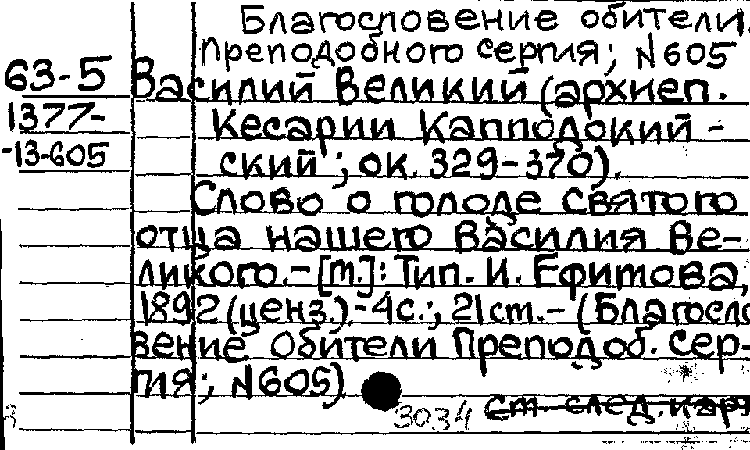 Благословение обители.
Преподобного Сергия; N605
63-5 Василий Великий (архиеп.
1377- Кесарии Капподокий-
-13-605 ский; ок. 329-370).
Слово о голоде святого
отца нашего Василия Ве-
ликого.-[М.]: Тип. И. Ефимова,
1892 (ценз.).-4с.; 21 см.-(Благосло
вение Обители Преподоб. Сер-
гия; N605)
3034 См. след. карт